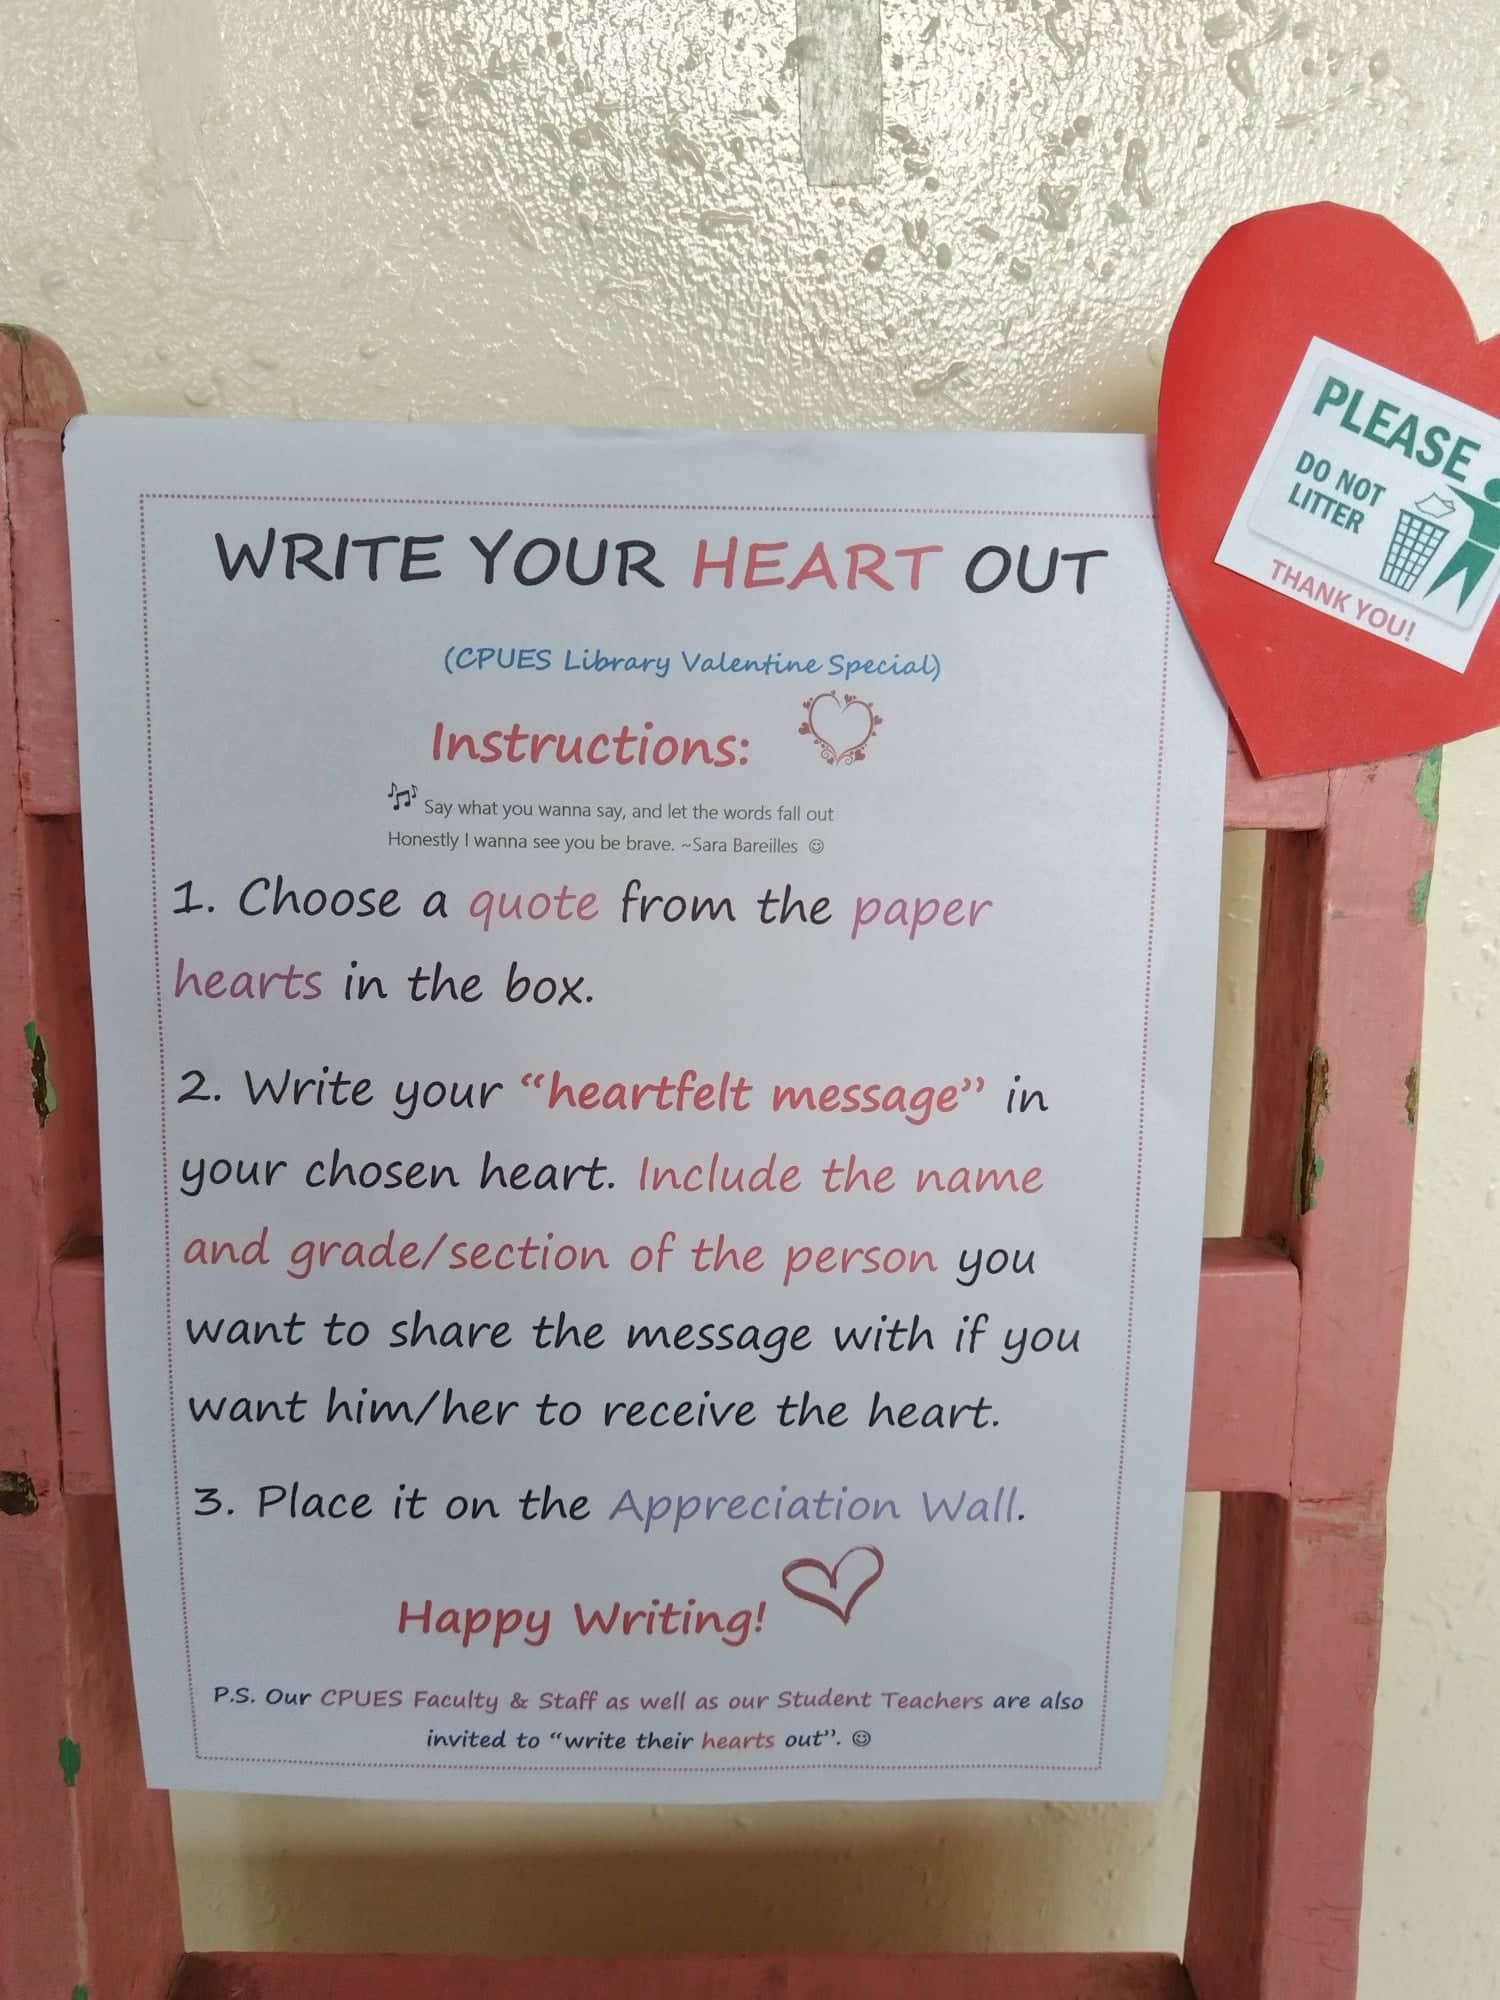 WRITE YOUR HEART OUT
(CPUES Library Valentine Special)
Instructions:
Say what you wanna say, and let the words fall out
Honestly I wanna see you be brave. ~Sara Bareilles ☺
1. Choose a quote from the paper
hearts in the box.
2. Write your “heartfelt message” in
your chosen heart. Include the name
and grade/section of the person you
want to share the message with if you
want him/her to receive the heart.
3. Place it on the Appreciation Wall.
Happy Writing!
P.S. Our CPUES Faculty & Staff as well as our Student Teachers are also
invited to “write their hearts out”. ☺
PLEASE
DO NOT
LITTER
THANK YOU!